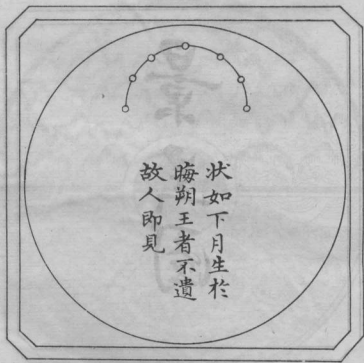 状如下月生於
晦朔王者不遺
故人即見